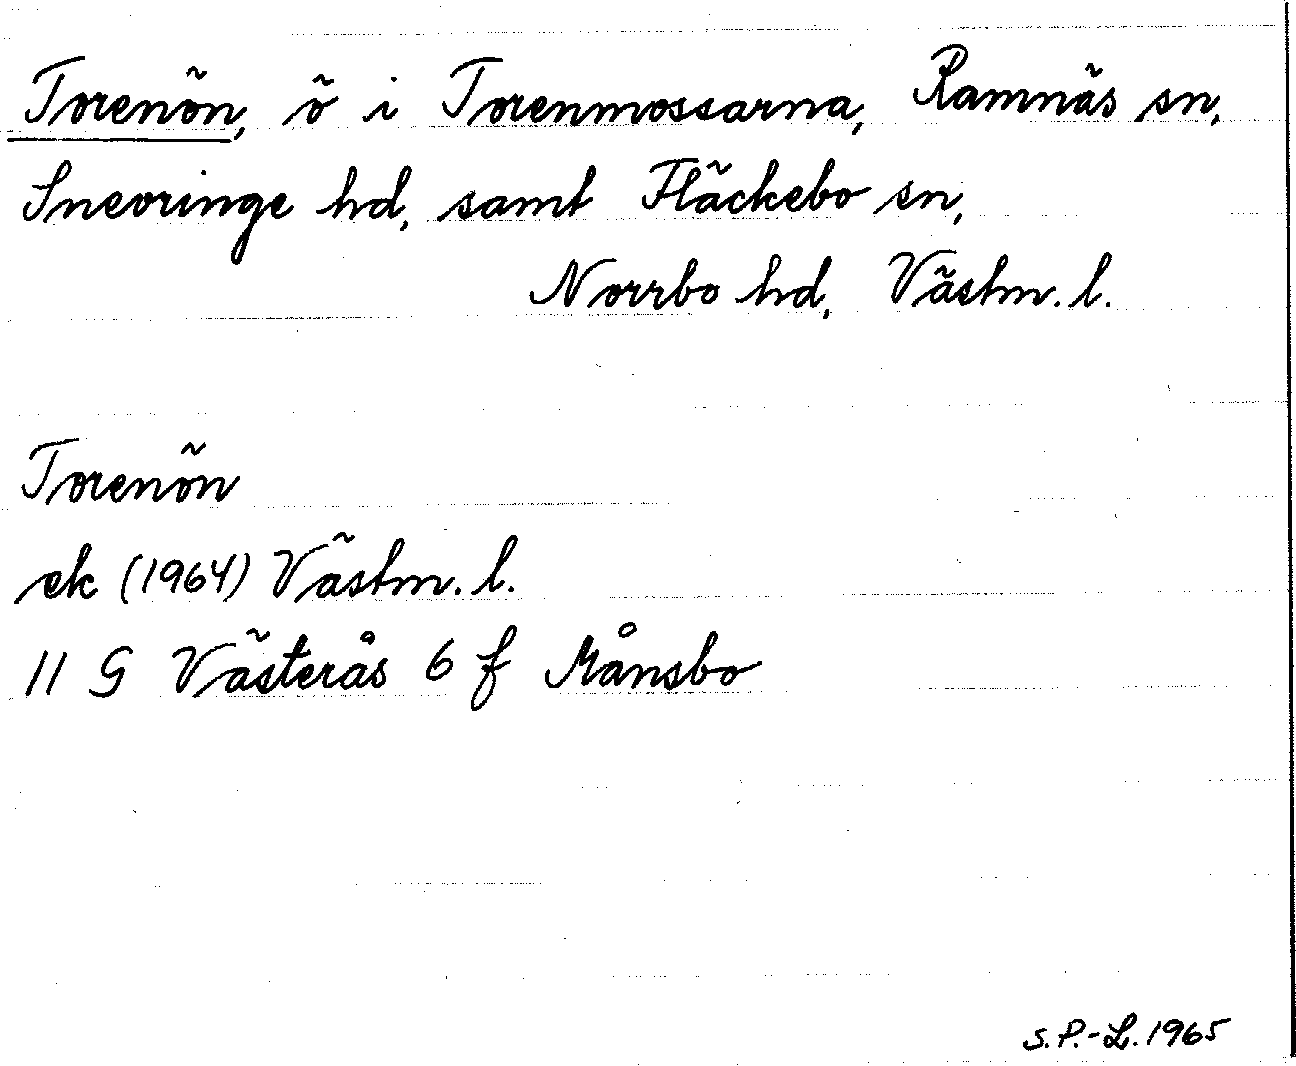 Torenön, ö i Torenmossarna, Ramnäs sn,
Snevringe hd, samt Fläckebo sn,
Norrbo hd, Västm. l.
Torenön
ek (1964) Västm. l.
11 G Västerås 6 f Månsbo
S.P.-L. 1965